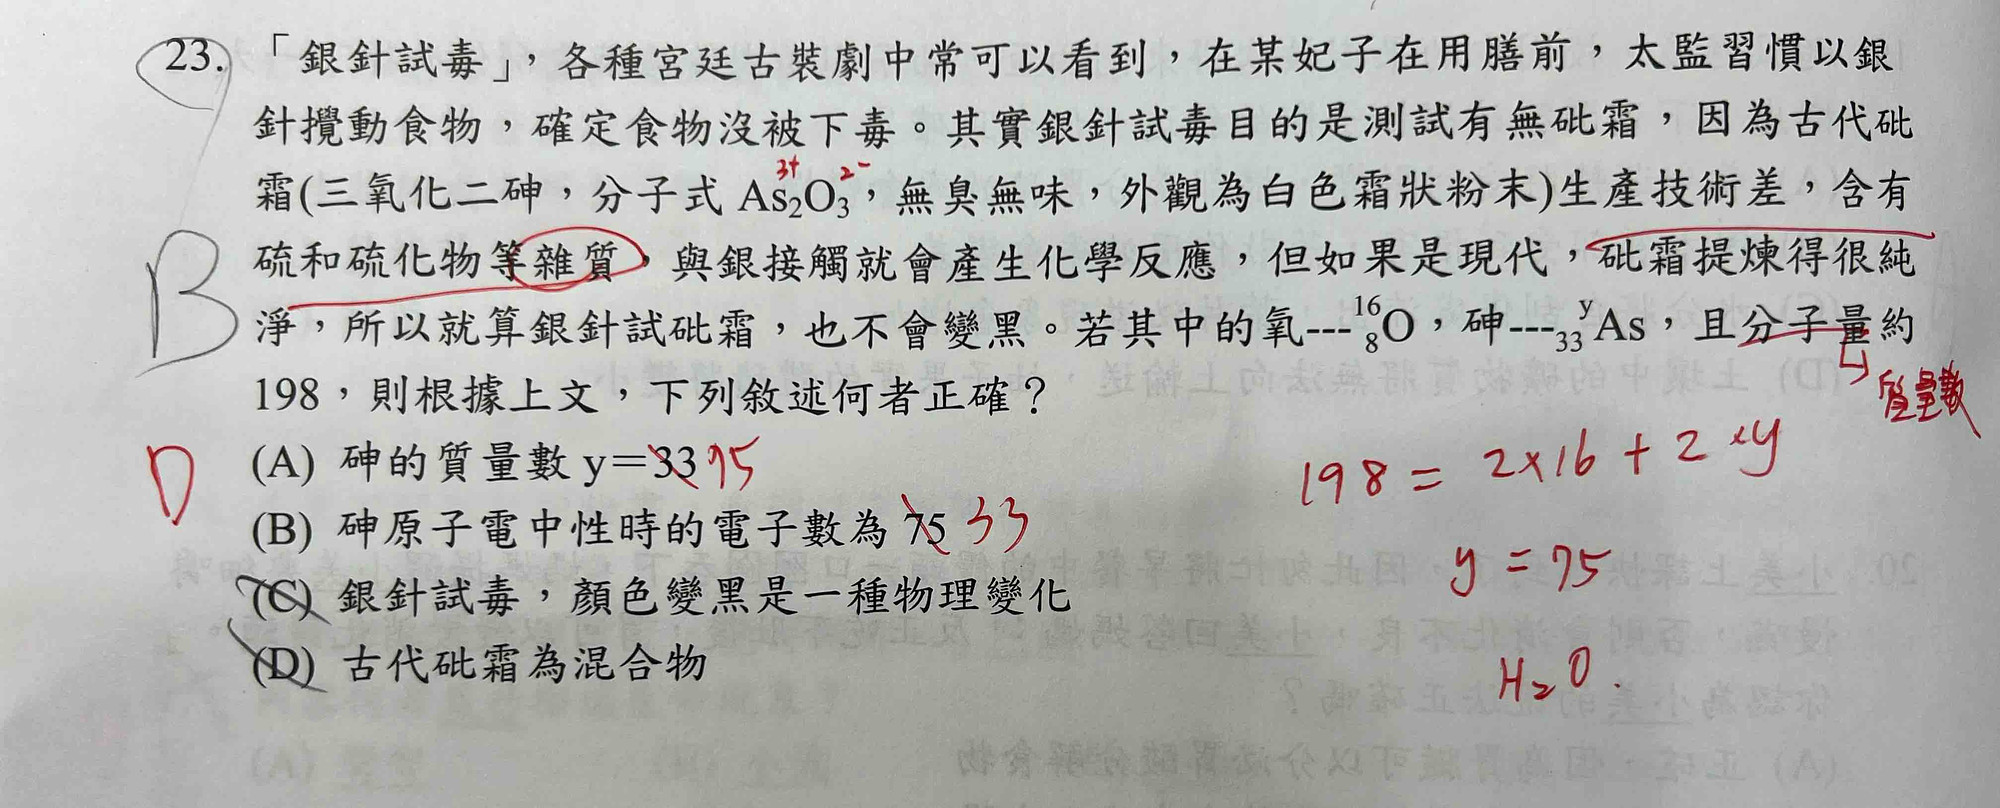 23.「銀針試毒」，各種宮廷古裝劇中常可以看到，在某妃子在用膳前，太監習慣以銀
針攪動食物，確定食物沒被下毒。其實銀針試毒目的是測試有無砒霜，因為古代砒
3+ 2-
霜(三氧化二砷，分子式 As₂O₃，無臭無味，外觀為白色霜狀粉末)生產技術差，含有
硫和硫化物等雜質，與銀接觸就會產生化學反應，但如果是現代，砒霜提煉得很純
淨，所以就算銀針試砒霜，也不會變黑。若其中的氧---¹⁶₈O，砷---ʸ₃₃As，且分子量約
質量數
198，則根據上文，下列敘述何者正確？
(A) 砷的質量數 y＝33 75
198 = 2×16 + 2×y
(B) 砷原子電中性時的電子數為 75 33
y = 75
(C) 銀針試毒，顏色變黑是一種物理變化
(D) 古代砒霜為混合物
H₂O.
B
D